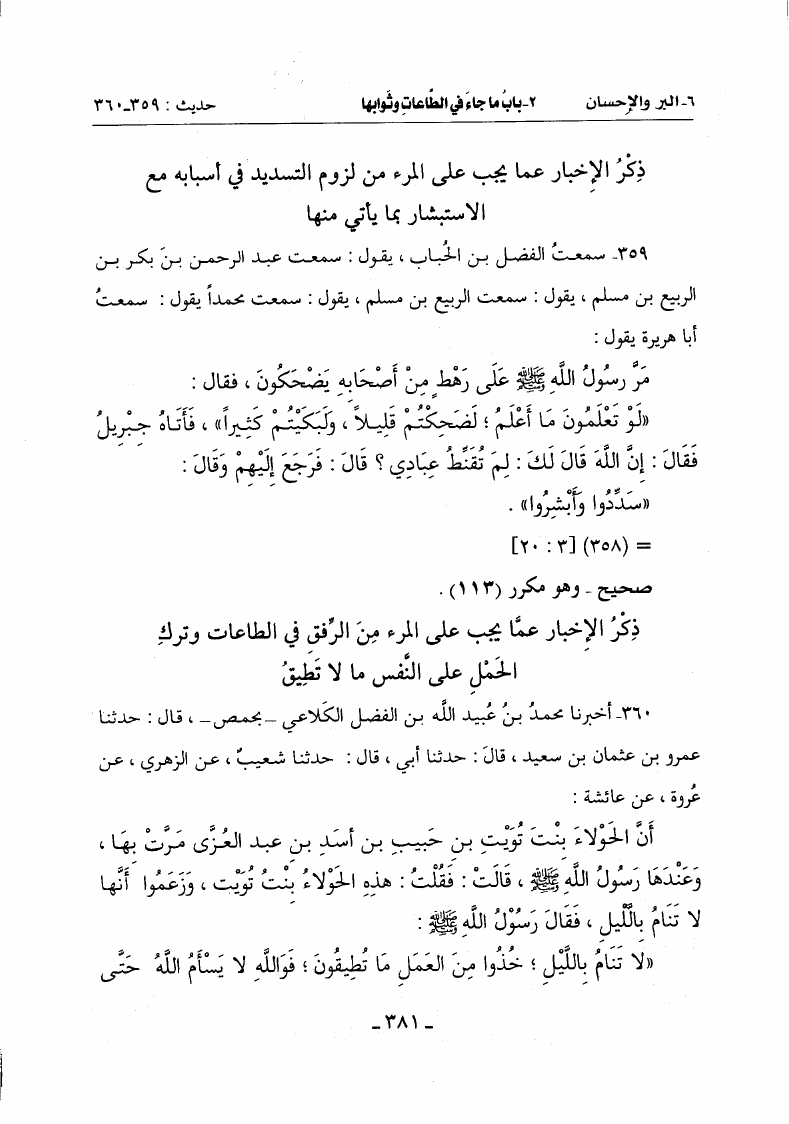 ٦ـ البر والإحسان ٢ـ بابُ ما جاءَ في الطَّاعاتِ وثَوابِها حديث : ٣٥٩ـ٣٦٠
ذِكْرُ الإخبار عما يجب على المرء من لزوم التسديد في أسبابه مع
الاستبشار بما يأتي منها
٣٥٩ـ سمعتُ الفضل بن الحُباب ، يقول : سمعت عبد الرحمن بنَ بكر بن
الربيع بن مسلم ، يقول : سمعت الربيع بن مسلم ، يقول : سمعت محمداً يقول : سمعتُ
أبا هريرة يقول :
مَرَّ رسولُ اللَّهِ ﷺ عَلَى رَهْطٍ مِنْ أَصْحَابِهِ يَضْحَكُونَ ، فقال :
«لَوْ تَعْلَمُونَ مَا أَعْلَمُ ؛ لَضَحِكْتُمْ قَلِيلاً ، وَلَبَكَيْتُمْ كَثِيراً» ، فَأَتَاهُ جِبْرِيلُ
فَقَالَ : إِنَّ اللَّهَ قَالَ لَكَ : لِمَ تُقَنِّطُ عِبَادِي ؟ قَالَ : فَرَجَعَ إِلَيْهِمْ وَقَالَ :
«سَدِّدُوا وَأَبْشِرُوا» .
= (٣٥٨) [٣ : ٢٠]
صحيح ـ وهو مكرر (١١٣) .
ذِكْرُ الإخبار عمَّا يجب على المرء مِنَ الرِّفقِ في الطاعات وتركِ
الحَمْلِ على النَّفس ما لا تَطِيقُ
٣٦٠ـ أخبرنا محمدُ بنُ عُبيد الله بن الفضل الكَلاعي ـ بحمص ـ ، قال : حدثنا
عمرو بن عثمان بن سعيد ، قالَ : حدثنا أبي ، قال : حدثنا شعيبٌ ، عن الزهري ، عن
عُروة ، عن عائشة :
أَنَّ الحَوْلاءَ بِنْتَ تُوَيْتِ بنِ حَبيبِ بن أسَدِ بنِ عبد العُزَّى مَرَّتْ بِهَا ،
وَعَنْدَهَا رَسولُ اللَّهِ ﷺ ، قَالَتْ : فَقُلْتُ : هذِهِ الحَوْلاءُ بِنْتُ تُوَيْت ، وَزَعَمُوا أَنَّها
لا تَنَامُ بِاللَّيلِ ، فَقَالَ رَسُوْلُ اللَّهِ ﷺ :
«لا تَنَامُ بِاللَّيْلِ ؛ خُذُوا مِنَ العَمَلِ مَا تُطِيقُونَ ؛ فَوَاللَّهِ لا يَسْأَمُ اللَّهُ حَتَّى
ـ ٣٨١ ـ